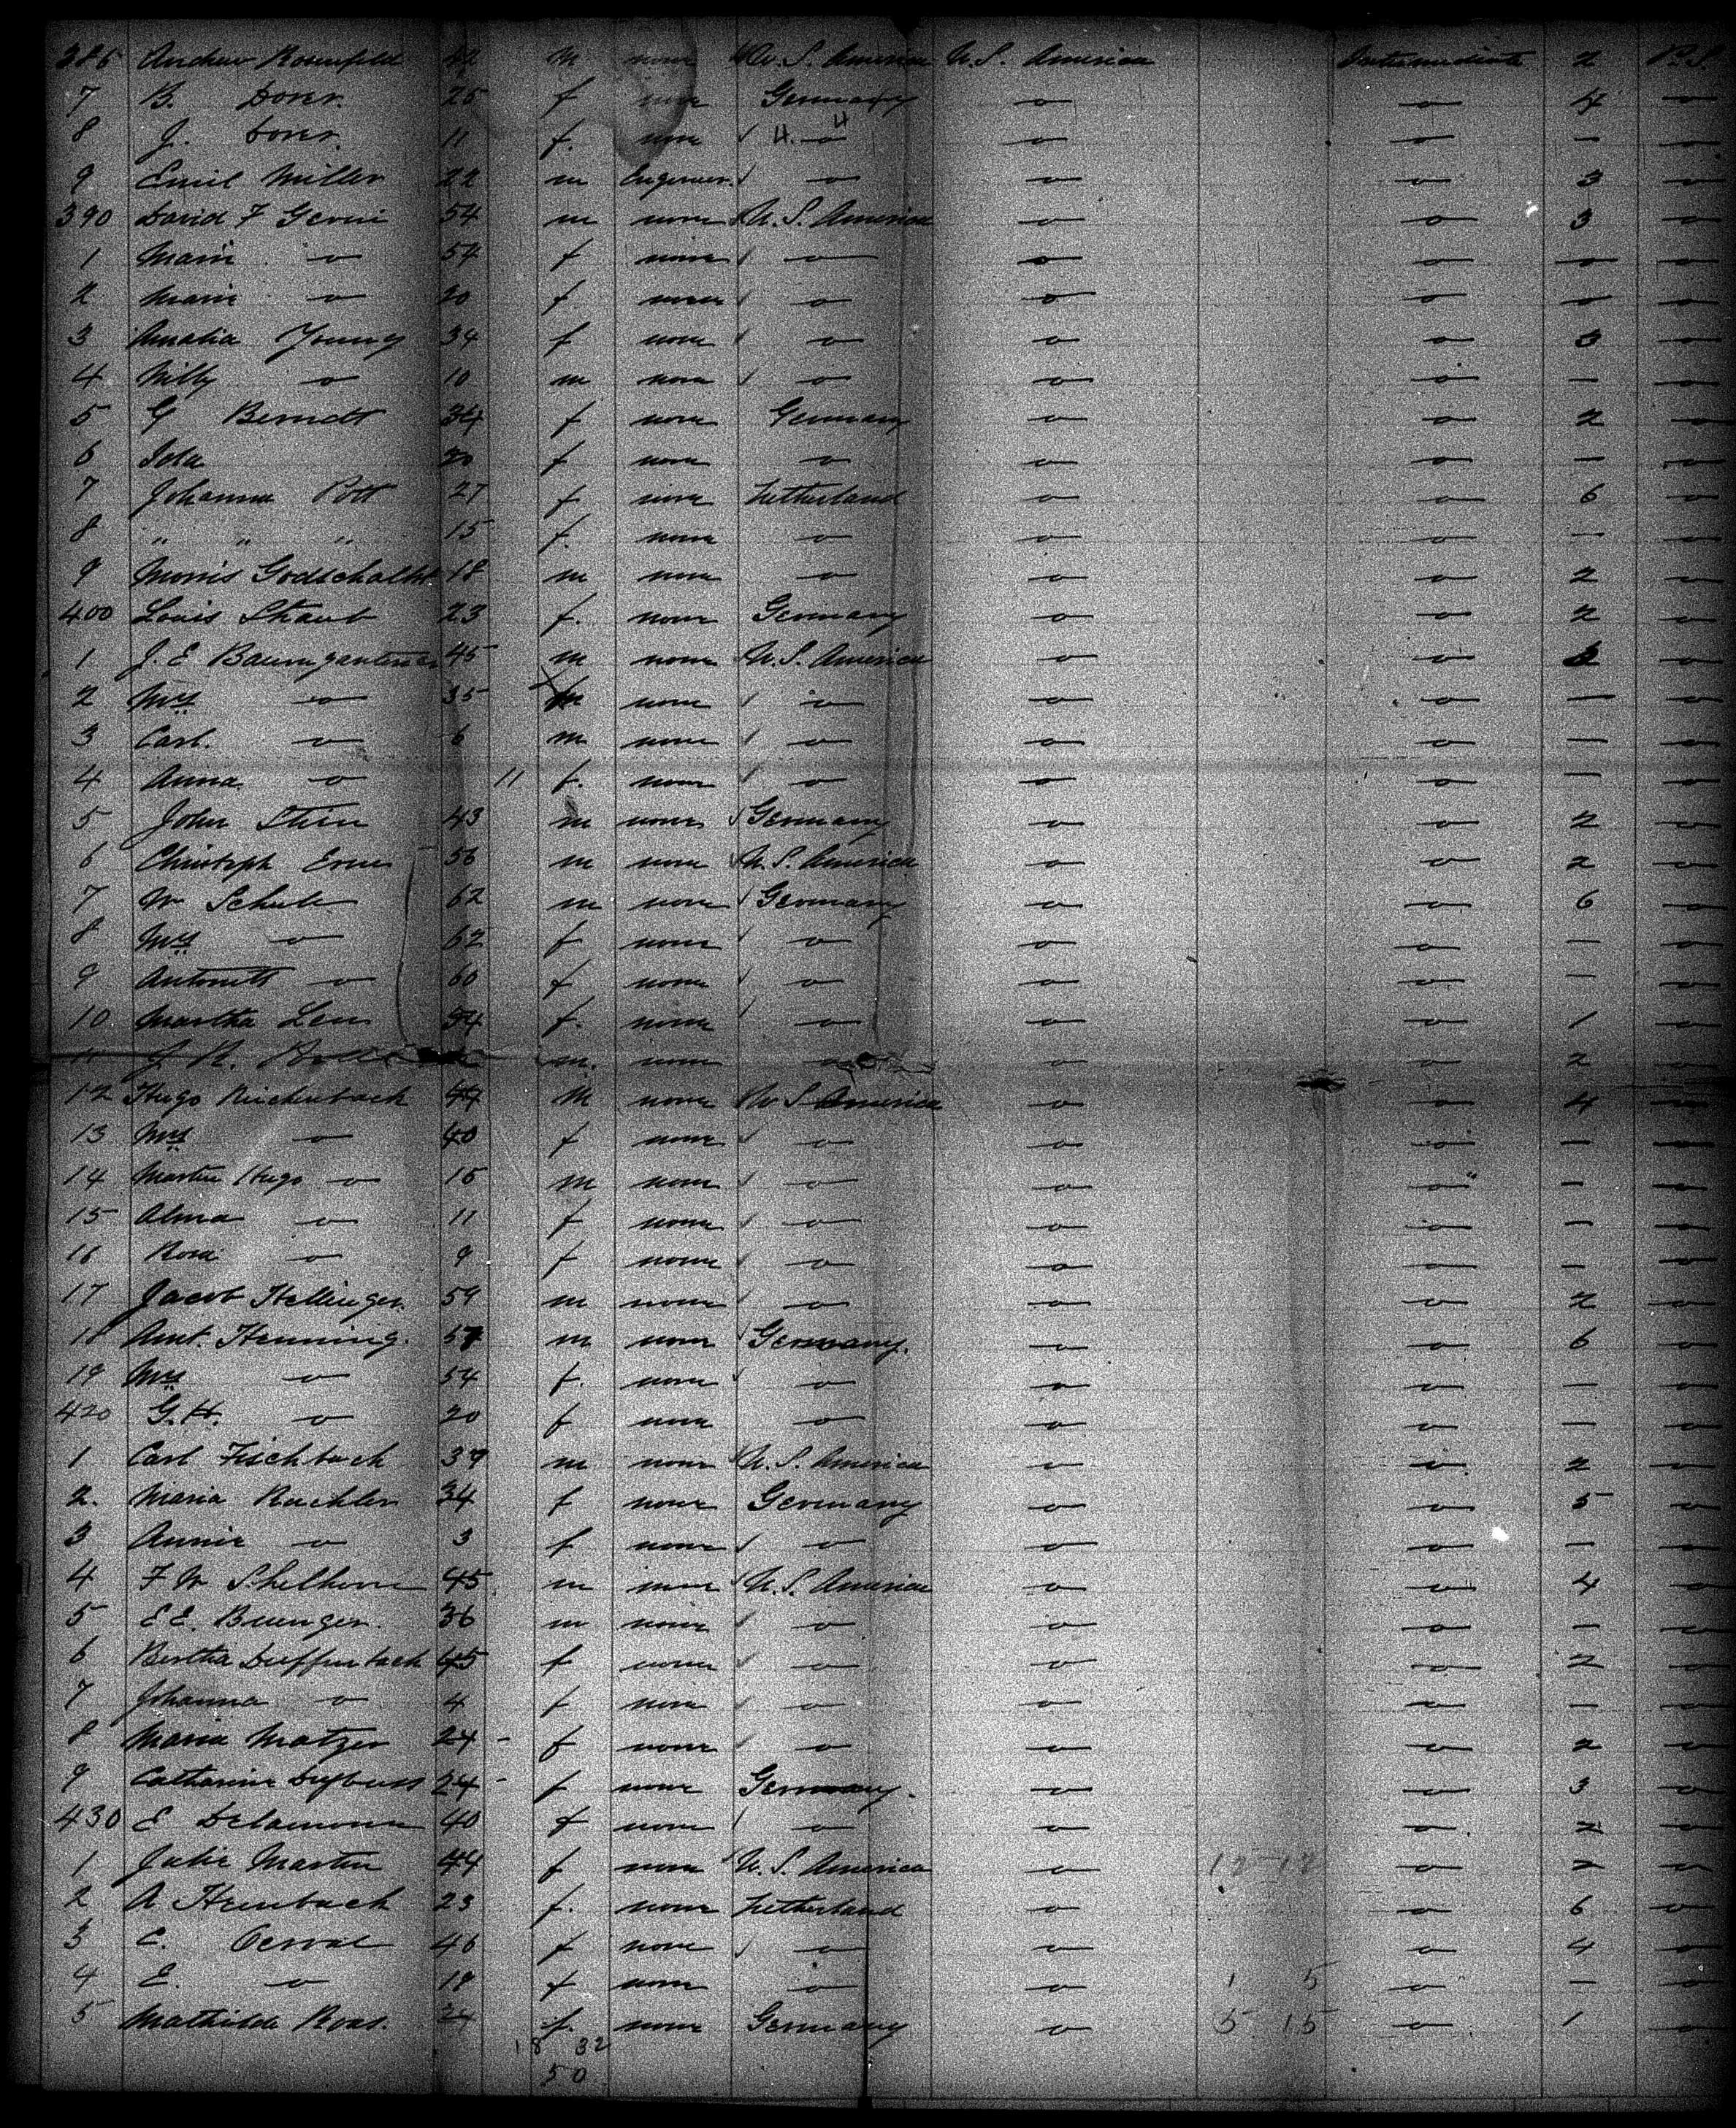 386 Andrew Rosenfeld 42 m none U. S. America U. S. America Intermediate 2 P. S.
7 B. Dorer. 25 f none Germany —o— —o— 4 —o—
8 J. Dorer. 11 f. none —o— —o— —o— — —o—
9 Emil Miller 22 m Engineer. —o— —o— —o— 3 —o—
390 David F 54 m none U. S. America —o— —o— 3 —o—
1 Marie —o— 54 f none —o— —o— —o— —o— —o—
2 Marie —o— 20 f none —o— —o— —o— —o— —o—
3 Amalia Young 34 f none —o— —o— —o— 3 —o—
4 Willy —o— 10 m none —o— —o— —o— — —o—
5 G Berndt 34 f none Germany —o— —o— 2 —o—
6 Ida 20 f none —o— —o— —o— — —o—
7 Johanna Pott 27 f none Netherland —o— —o— 6 —o—
8 " " " 15 f. none —o— —o— —o— — —o—
9 Morris 18 m none —o— —o— —o— 2 —o—
400 Louis Straub 23 f. none Germany —o— —o— 2 —o—
1 J. E Baumgartner 45 m none U. S. America —o— —o— —o—
2 Mrs —o— 35 none —o— —o— —o— — —o—
3 Carl. —o— 6 m none —o— —o— —o— — —o—
4 Anna —o— 11 f. none —o— —o— —o— — —o—
5 John 43 m none Germany —o— —o— 2 —o—
6 Christoph 56 m none U. S. America —o— —o— 2 —o—
7 W Schulz 62 m none Germany —o— —o— 6 —o—
8 Mrs —o— 62 f none —o— —o— —o— — —o—
9 Antonett —o— 60 f none —o— —o— —o— — —o—
10 Martha 54 f. none —o— —o— —o— 1 —o—
11 J. R. m. none —o— —o— —o— 2 —o—
12 Hugo Reichenbach 44 m none U S America —o— —o— 4 —o—
13 Mrs —o— 40 f none —o— —o— —o— — —o—
14 Martin Hugo —o— 15 m none —o— —o— —o— — —o—
15 Alma —o— 11 f none —o— —o— —o— — —o—
16 Rosa —o— 9 f none —o— —o— —o— — —o—
17 Jacob Hellinger. 59 m none —o— —o— —o— 2 —o—
18 Amt. Henning. 57 m none Germany. —o— —o— 6 —o—
19 Mrs —o— 54 f. none —o— —o— —o— — —o—
420 G. H. —o— 20 f none —o— —o— —o— — —o—
1 Carl Fischbach 39 m none U. S. America —o— —o— 2 —o—
2. Maria Ruchler 34 f none Germany —o— —o— 5 —o—
3 Annie —o— 3 f none —o— —o— —o— — —o—
4 F W Schelhorn 45 m none U. S. America —o— —o— 4 —o—
5 E E. Buenger. 36 m none —o— —o— —o— — —o—
6 Bertha Dieffenbach 45 f none —o— —o— —o— 2 —o—
7 Johanna —o— 4 f none —o— —o— —o— — —o—
8 Maria Matzer 24 - f none —o— —o— —o— 2 —o—
9 Catharine 24 - f none Germany. —o— —o— 3 —o—
430 E 40 f none —o— —o— —o— 2 —o—
1 Julie Martin 44 f none U. S. America —o— 12 12 —o— 2 —o—
2 A Heimbach 23 f. none Netherland —o— —o— 6 —o—
3 C. 46 f none —o— —o— —o— 4 —o—
4 E. —o— 18 f none —o— —o— 1 5 —o— — —o—
5 Mathilde Roas. 24 f. none Germany —o— 5 15 —o— 1 —o—
18 32
50